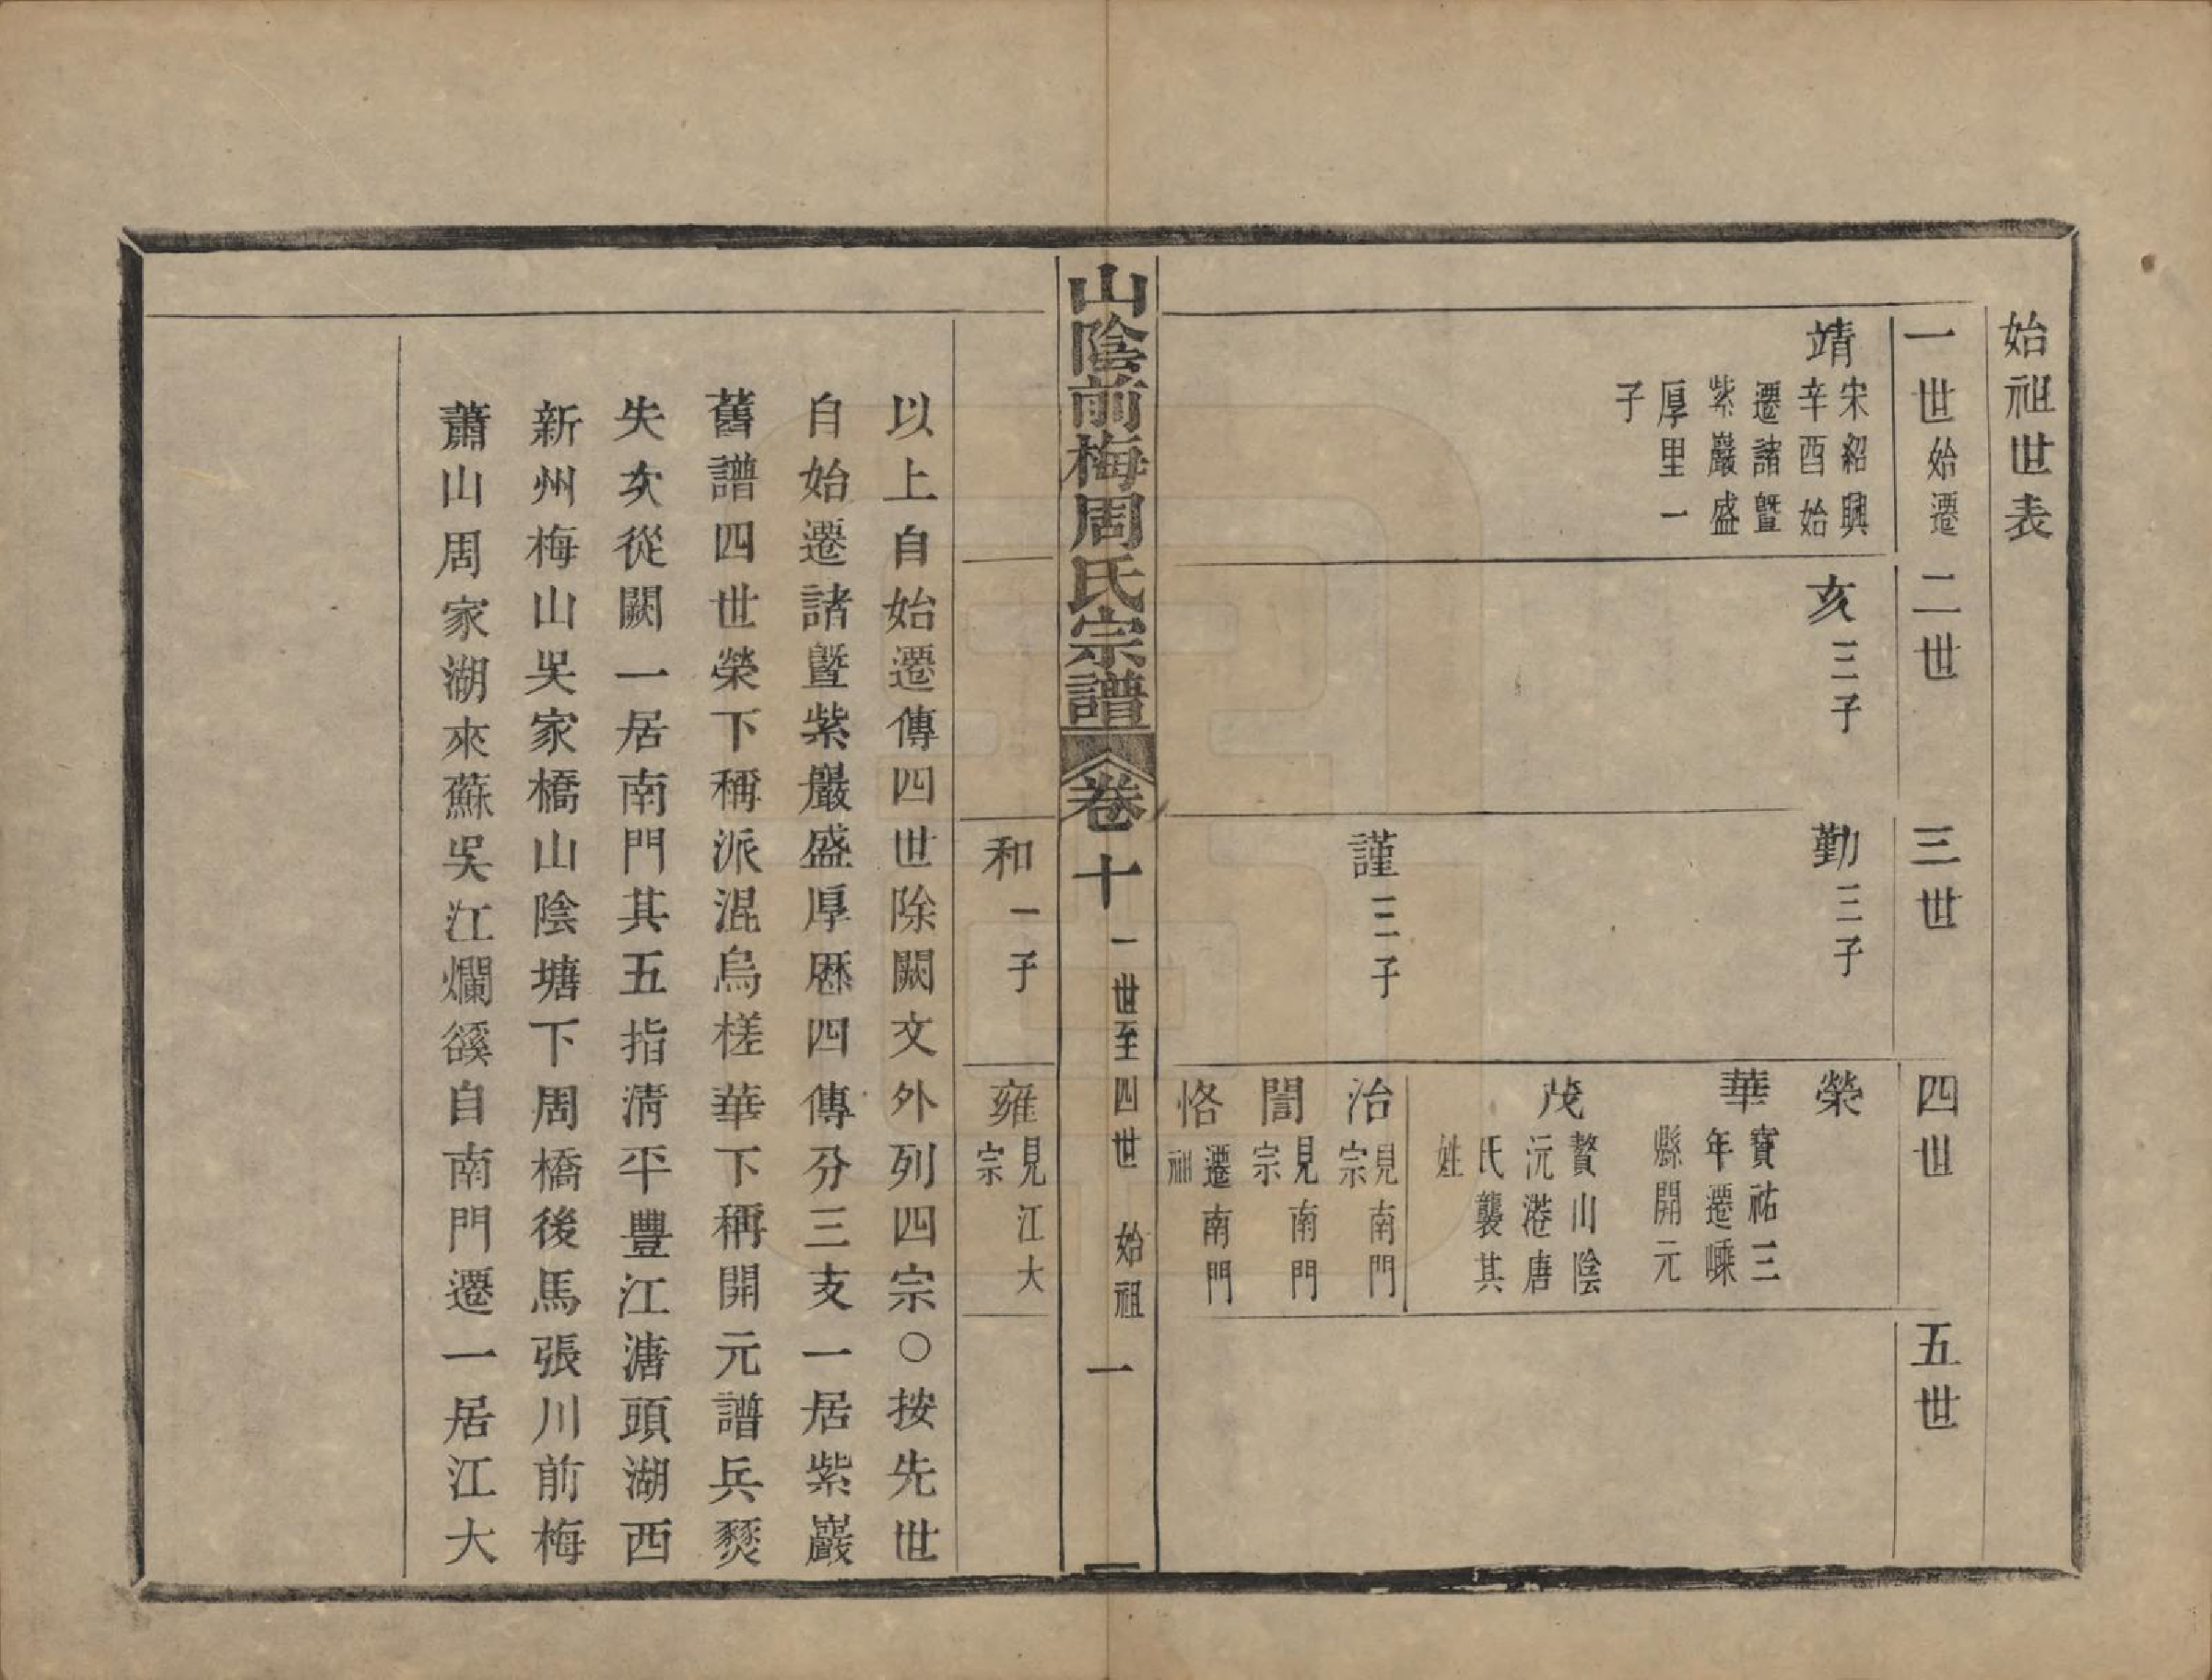 始祖世表
一世始遷
二世
三世
四世
五世
靖宋紹興
辛酉始
遷諸暨
紫巖盛
厚里一
子
亥三子
勤三子
榮
華寶祐三
年遷嵊
縣開元
茂贅山陰
沅港唐
氏襲其
姓
謹三子
治見南門
宗
誾見南門
宗
恪遷南門
祖
山陰前梅周氏宗譜 卷十 一世至四世 始祖 一
和一子
雍見江大
宗
以上自始遷傳四世除闕文外列四宗○按先世
自始遷諸暨紫巖盛厚歷四傳分三支一居紫巖
舊譜四世榮下稱派混烏槎華下稱開元譜兵燹
失次從闕一居南門其五指清平豐江溏頭湖西
新州梅山吳家橋山陰塘下周橋後馬張川前梅
蕭山周家湖來蘇吳江爛谿自南門遷一居江大